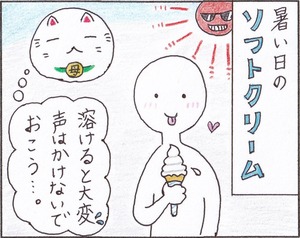 暑い日の
ソフトクリーム
母
溶けると大変
声はかけないで
おこう…。